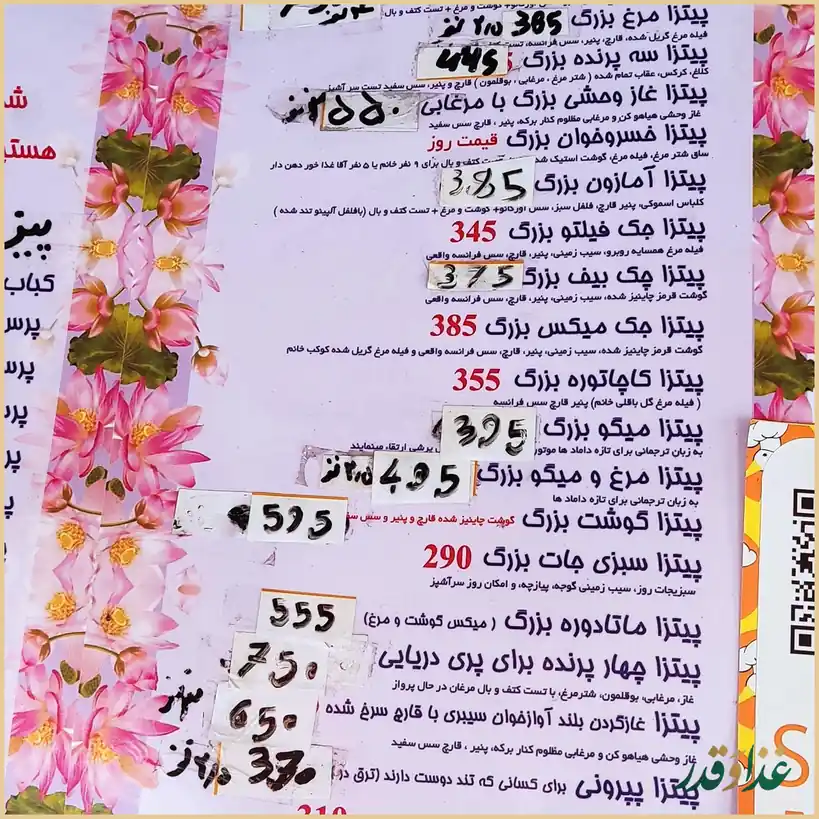 پیتزا مرغ بزرگ 385 ۲٫۵ نفر
فیله مرغ گریل شده، قارچ، پنیر، سس فرانسه، تست
پیتزا سه پرنده بزرگ 445
کلاغ، کرکس، عقاب تمام شده ( شتر مرغ ، مرغابی ، بوقلمون ) قارچ و پنیر، سس سفید تست سر آشپز
پیتزا غاز وحشی بزرگ با مرغابی ۵۵۰
غاز وحشی هیاهو کن و مرغابی مظلوم کنار برکه، پنیر ، قارچ سس سفید
پیتزا خسروخوان بزرگ قیمت روز
ساق شتر مرغ، فیله مرغ، گوشت استیک شده تست کتف و بال برای ۹ نفر خانم یا ۵ نفر آقا غذا خور دهن دار
پیتزا آمازون بزرگ 385
کلباس اسموکی، پنیر قارچ، فلفل سبز، سس اورگانو+ گوشت و مرغ + تست کتف و بال (بافلفل آلپینو تند شده )
پیتزا جک فیلتو بزرگ 345
فیله مرغ همسایه روبرو، سیب زمینی، پنیر، قارچ، سس فرانسه واقعی
پیتزا جک بیف بزرگ 375
گوشت قرمز چاینیز شده، سیب زمینی، پنیر، قارچ، سس فرانسه واقعی
پیتزا جک میکس بزرگ 385
گوشت قرمز چاینیز شده، سیب زمینی، پنیر، قارچ، سس فرانسه واقعی و فیله مرغ گریل شده کوکب خانم
پیتزا کاچاتوره بزرگ 355
( فیله مرغ گل باقلی خانم) پنیر قارچ سس فرانسه
پیتزا میگو بزرگ 395
به زبان ترجمانی برای تازه داماد ها موتور پرشی ارتقاء مینمایند
پیتزا مرغ و میگو بزرگ 495 ۲٫۵ نفر
به زبان ترجمانی برای تازه داماد ها
پیتزا گوشت بزرگ گوشت چاینیز شده قارچ و پنیر و سس 595
پیتزا سبزی جات بزرگ 290
سبزیجات روز، سیب زمینی گوجه، پیازچه، و امکان روز سرآشپز
پیتزا ماتادوره بزرگ ( میکس گوشت و مرغ) 555
پیتزا چهار پرنده برای پری دریایی 750
غاز، مرغابی، بوقلمون، شترمرغ، با تست کتف و بال مرغان در حال پرواز
پیتزا غازگردن بلند آوازخوان سیبری با قارچ سرخ شده 650
غاز وحشی هیاهو کن و مرغابی مظلوم کنار برکه، پنیر ، قارچ سس سفید
پیتزا پپرونی برای کسانی که تند دوست دارند (ترق 370 ۲٫۵ نفر
310
هستی
کباب
پرس
غذا و قدر